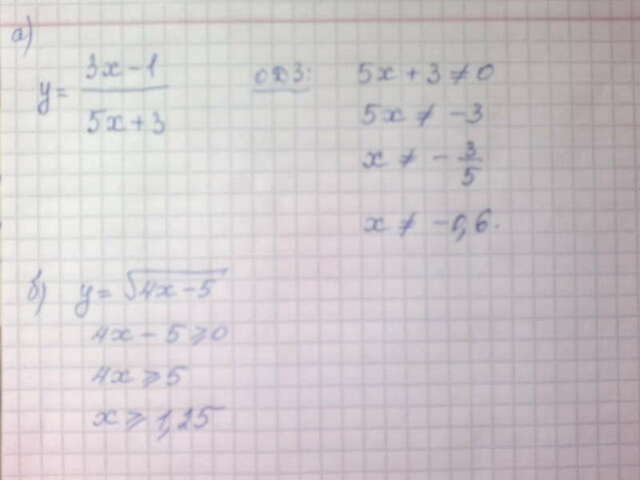 а)
y = (3x - 1)/(5x + 3) ОДЗ: 5x + 3 ≠ 0
5x ≠ -3
x ≠ - 3/5
x ≠ -0,6.
б) y = √(4x - 5)
4x - 5 ⩾ 0
4x ⩾ 5
x ⩾ 1,25